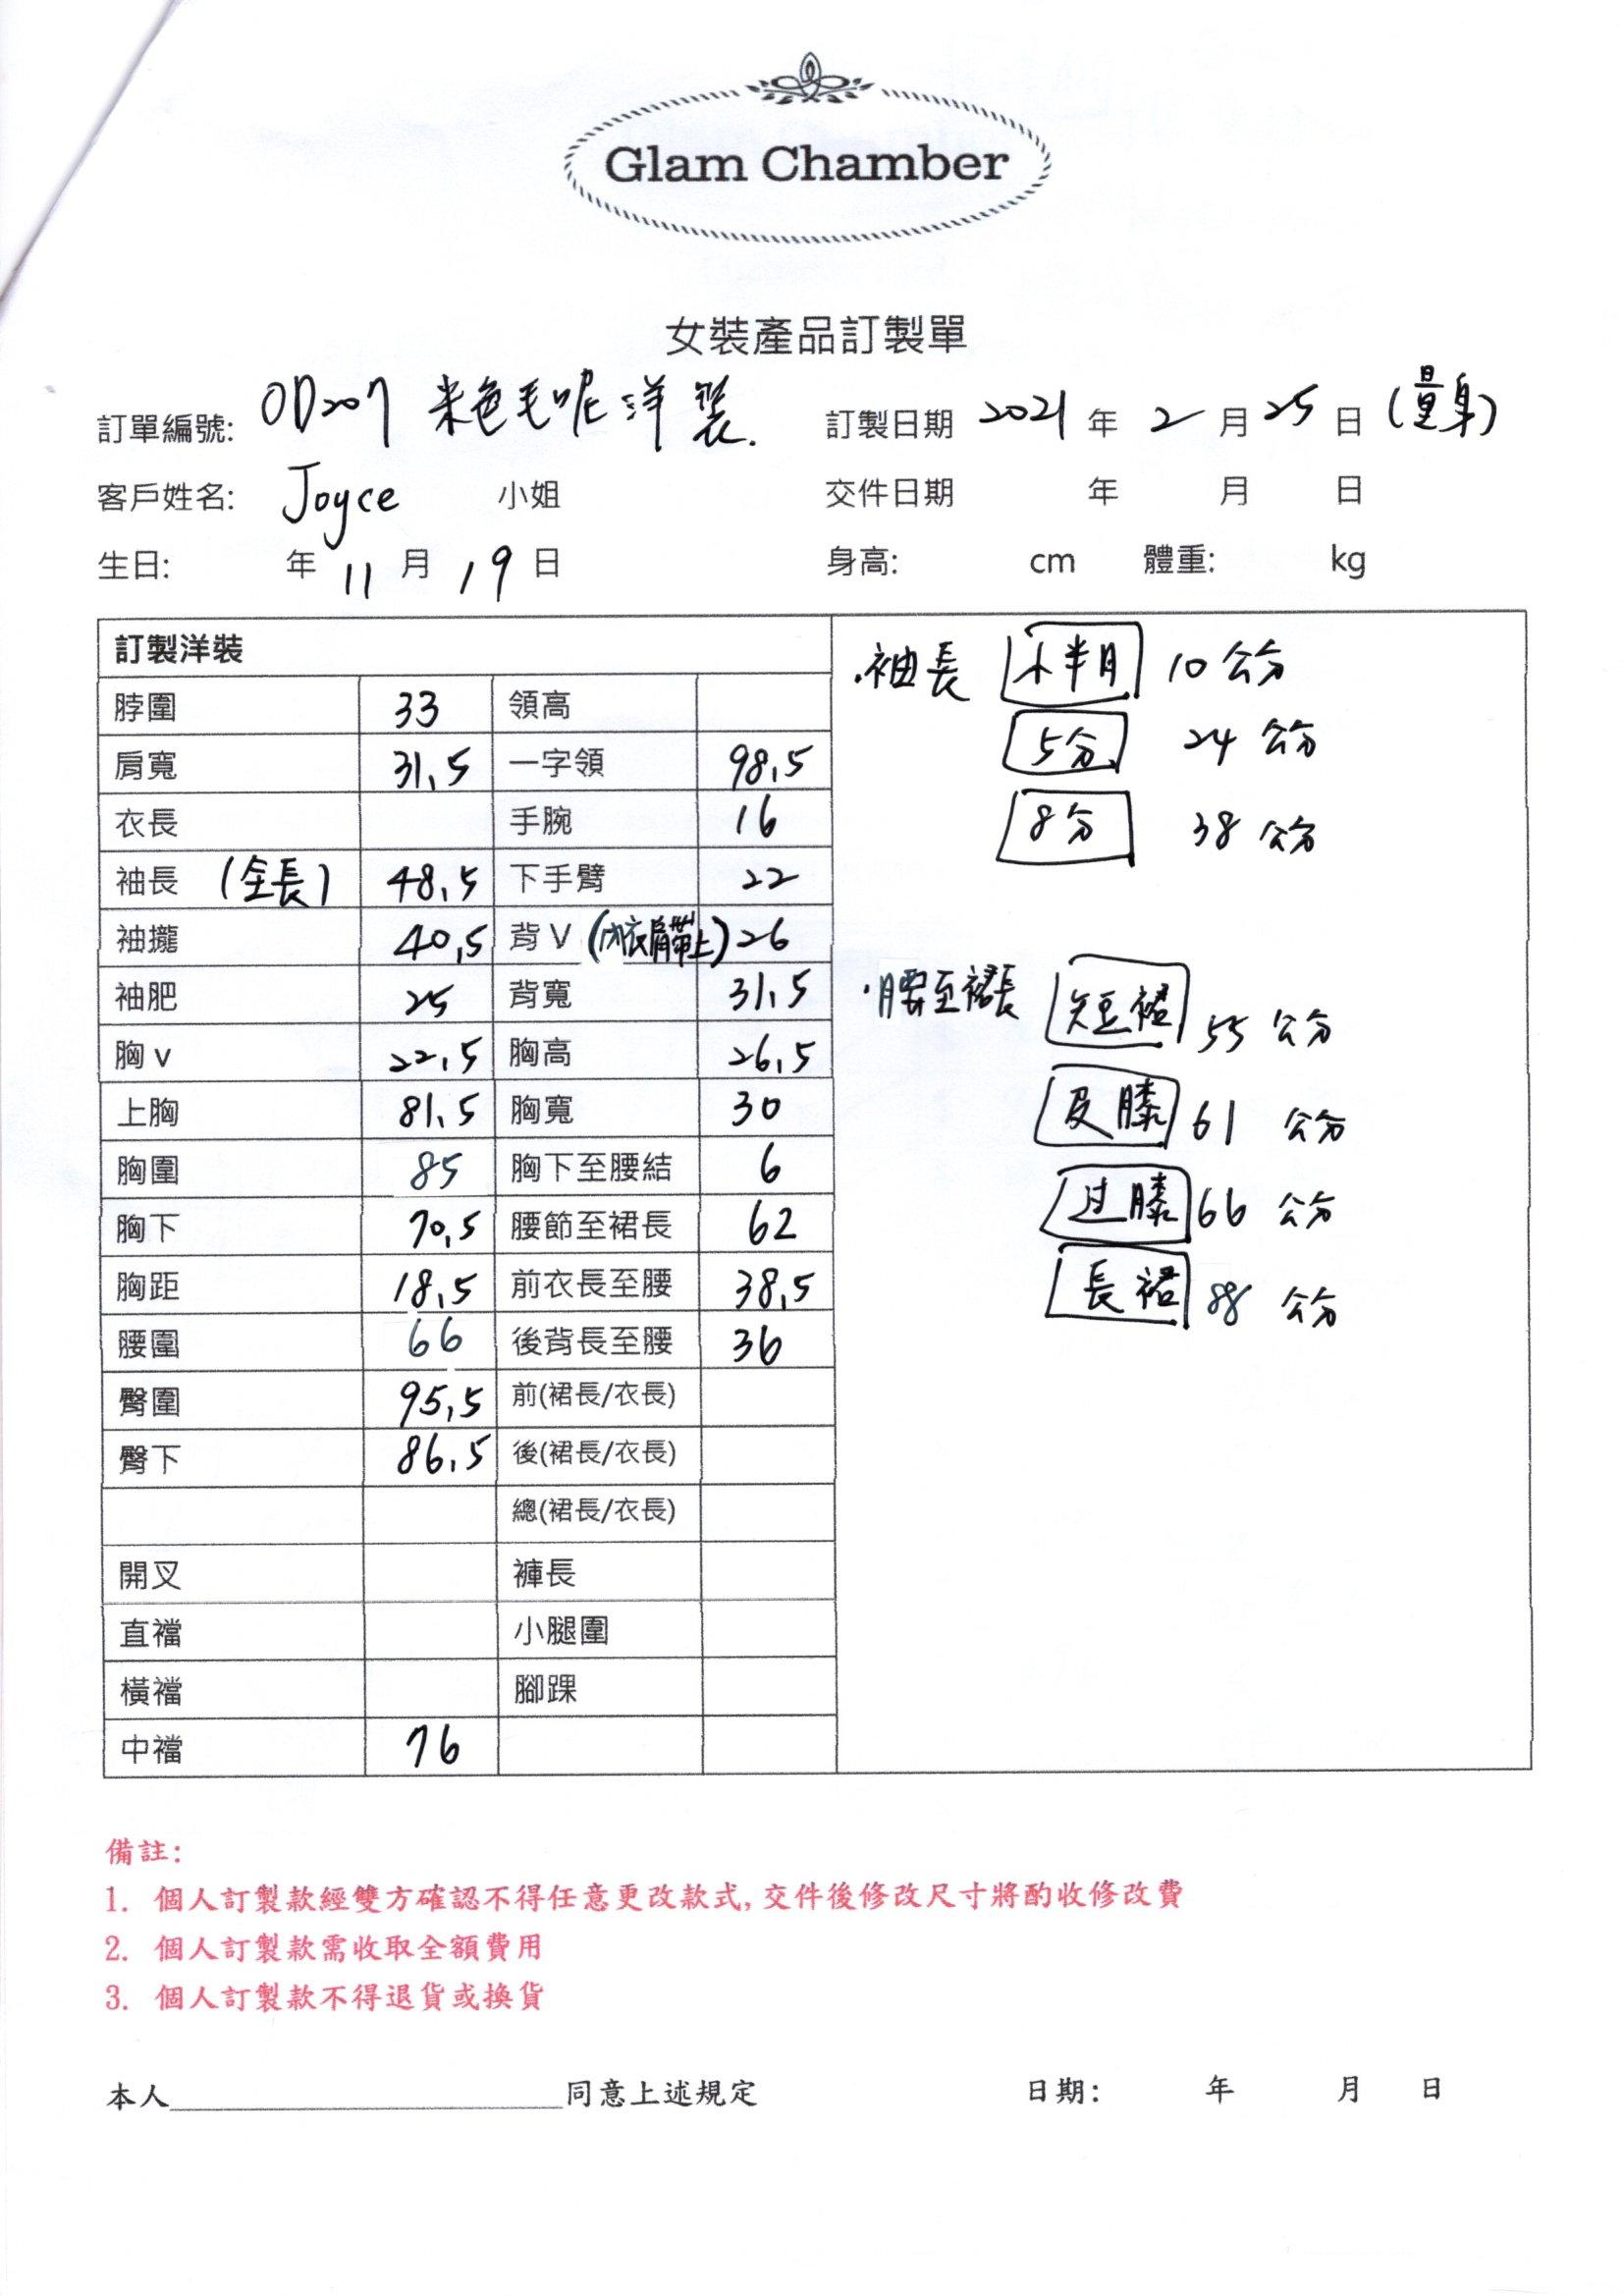 Glam Chamber
女裝產品訂製單
訂單編號: OD207 米色毛呢洋裝. 訂製日期 2021 年 2 月 25 日 (量身)
客戶姓名: Joyce 小姐 交件日期 年 月 日
生日: 年 11 月 19 日 身高: cm 體重: kg
訂製洋裝
脖圍 33 領高
肩寬 31.5 一字領 98.5
衣長 手腕 16
袖長 (全長) 48.5 下手臂 22
袖攏 40.5 背V (內衣肩帶上) 26
袖肥 25 背寬 31.5
胸v 22.5 胸高 26.5
上胸 81.5 胸寬 30
胸圍 85 胸下至腰結 6
胸下 70.5 腰節至裙長 62
胸距 18.5 前衣長至腰 38.5
腰圍 66 後背長至腰 36
臀圍 95.5 前(裙長/衣長)
臀下 86.5 後(裙長/衣長)
總(裙長/衣長)
開叉 褲長
直襠 小腿圍
橫襠 腳踝
中襠 76
·袖長 小半月 10 公分
5分 24 公分
8分 38 公分
·腰至裙長 短裙 55 公分
及膝 61 公分
过膝 66 公分
長裙 88 公分
備註:
1. 個人訂製款經雙方確認不得任意更改款式, 交件後修改尺寸將酌收修改費
2. 個人訂製款需收取全額費用
3. 個人訂製款不得退貨或換貨
本人____________________同意上述規定 日期: 年 月 日